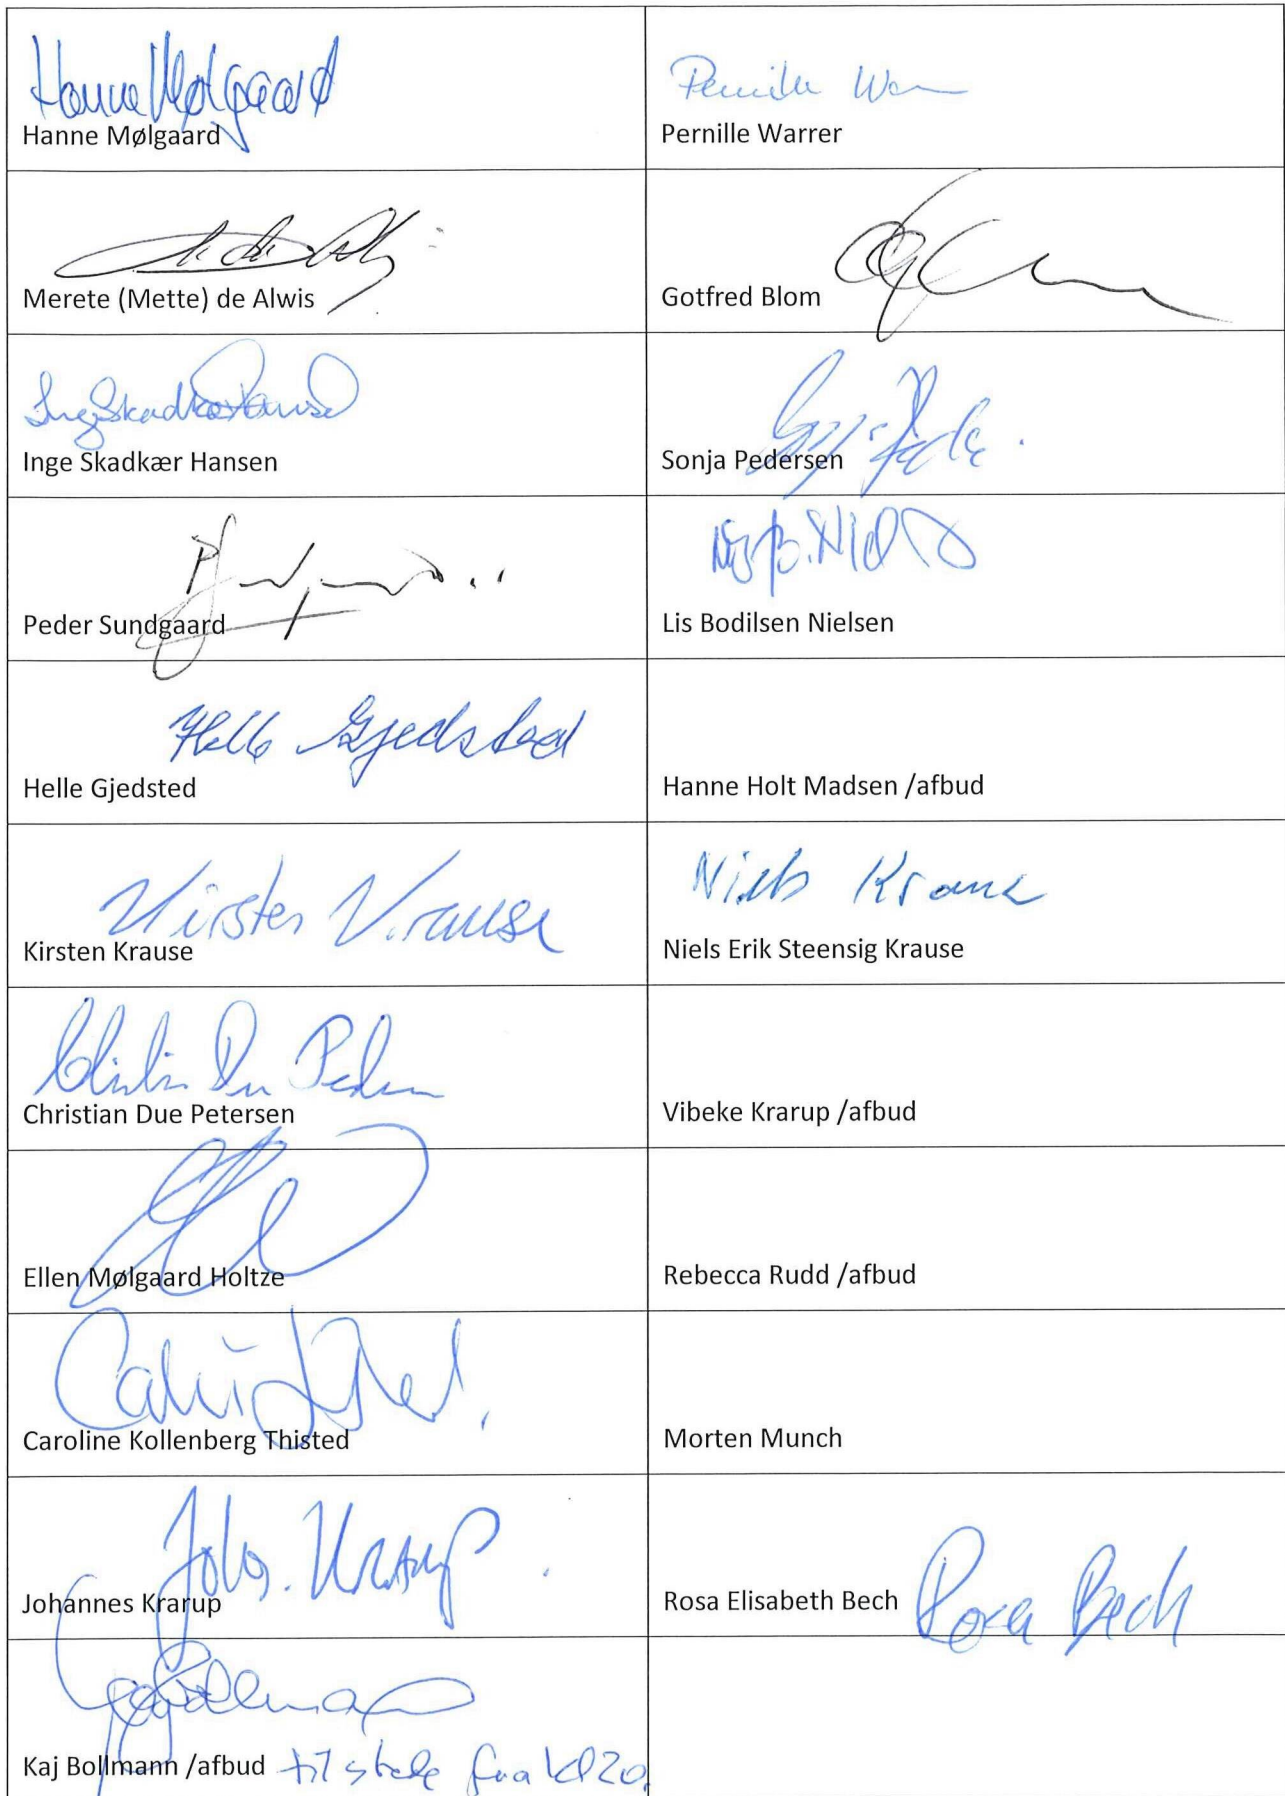 Hanne Mølgaard
Hanne Mølgaard
Pernille
Pernille Warrer
Merete (Mette) de Alwis
Gotfred Blom
Inge Skadkær Hansen
Inge Skadkær Hansen
Sonja Pedersen
Peder Sundgaard
Lis Bodilsen Nielsen
Helle Gjedsted
Helle Gjedsted
Hanne Holt Madsen /afbud
Kirsten Krause
Kirsten Krause
Niels Krause
Niels Erik Steensig Krause
Christian Due Petersen
Vibeke Krarup /afbud
Ellen Mølgaard Holtze
Rebecca Rudd /afbud
Caroline Kollenberg Thisted
Morten Munch
Johs. Krarup
Johannes Krarup
Rosa Elisabeth Bech Rosa Bech
Kaj Bollmann /afbud til stede fra kl 20.